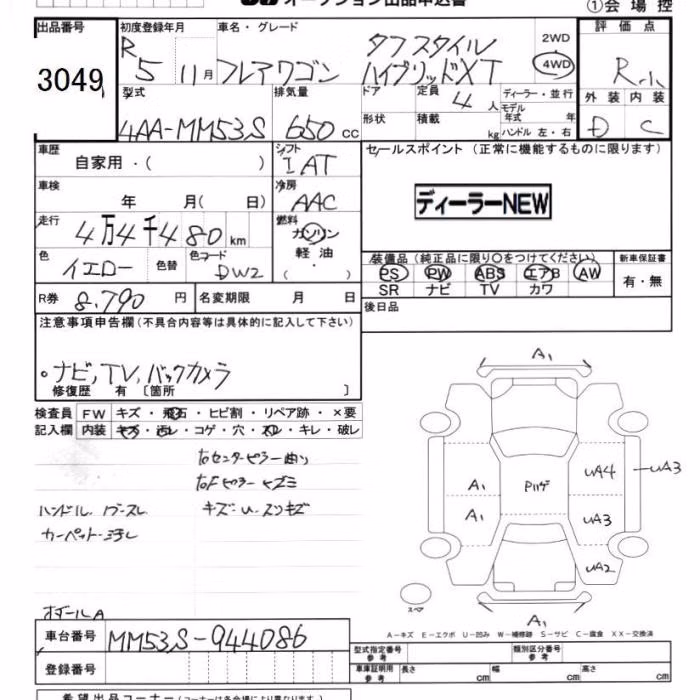 オークション出品申込書
①会場控
出品番号 初度登録年月 車名・グレード 評価点
3049
R 5 11月 フレアワゴン タフスタイル ハイブリッドXT 2WD 4WD R-小
型式 排気量 ドア 定員 4人 ディーラー・並行 外装 内装
4AA-MM53S 650cc 形状 積載 kg モデル年式 年 D C
ハンドル 左・右
車歴 シフト セールスポイント (正常に機能するものに限ります)
自家用・( ) IAT
車検 冷房
年 月( 日) AAC ディーラーNEW
走行 燃料
4万4千480km ガソリン
軽油
( ・ )
色 イエロー 色替 色コード DW2
装備品(純正品に限り○をつけてください) 新車保証書
PS PW ABS エアB AW 有・無
SR ナビ TV カワ
R券 8.790円 名変期限 月 日 後日品
注意事項申告欄(不具合内容等は具体的に記入して下さい)
。ナビ,TV,バックカメラ
修復歴 有〔箇所 〕
検査員 FW キズ・飛石・ヒビ割・リペア跡・×要
記入欄 内装 キズ・汚レ・コゲ・穴・スレ・キレ・破レ
右センターピラー曲り
右Fピラーキズミ
ハンドル. キズ:U.スリキズ
カーペット.汚レ
A1
A1 Pハゲ UA4 UA3
A1 UA3
UA2
スペア A1
ホイールA
A-キズ E-エクボ U-凹み W-補修跡 S-サビ C-腐食 XX-交換済
車台番号 MM53S-944086
型式指定番号 参考 類別区分番号 参考
登録番号 車庫証明用 参考 長さ cm 幅 cm 高さ cm
希望出品コーナー